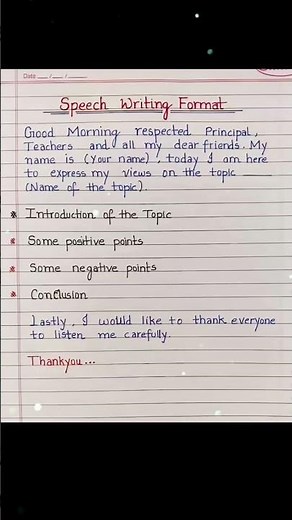 Date __/__/__
Speech Writing Format
Good Morning respected Principal,
Teachers and all my dear friends. My
name is (Your name), today I am here
to express my views on the topic ____
(Name of the topic).
* Introduction of the Topic
* Some positive points
* Some negative points
* Conclusion
Lastly, I would like to thank everyone
to listen me carefully.
Thankyou...